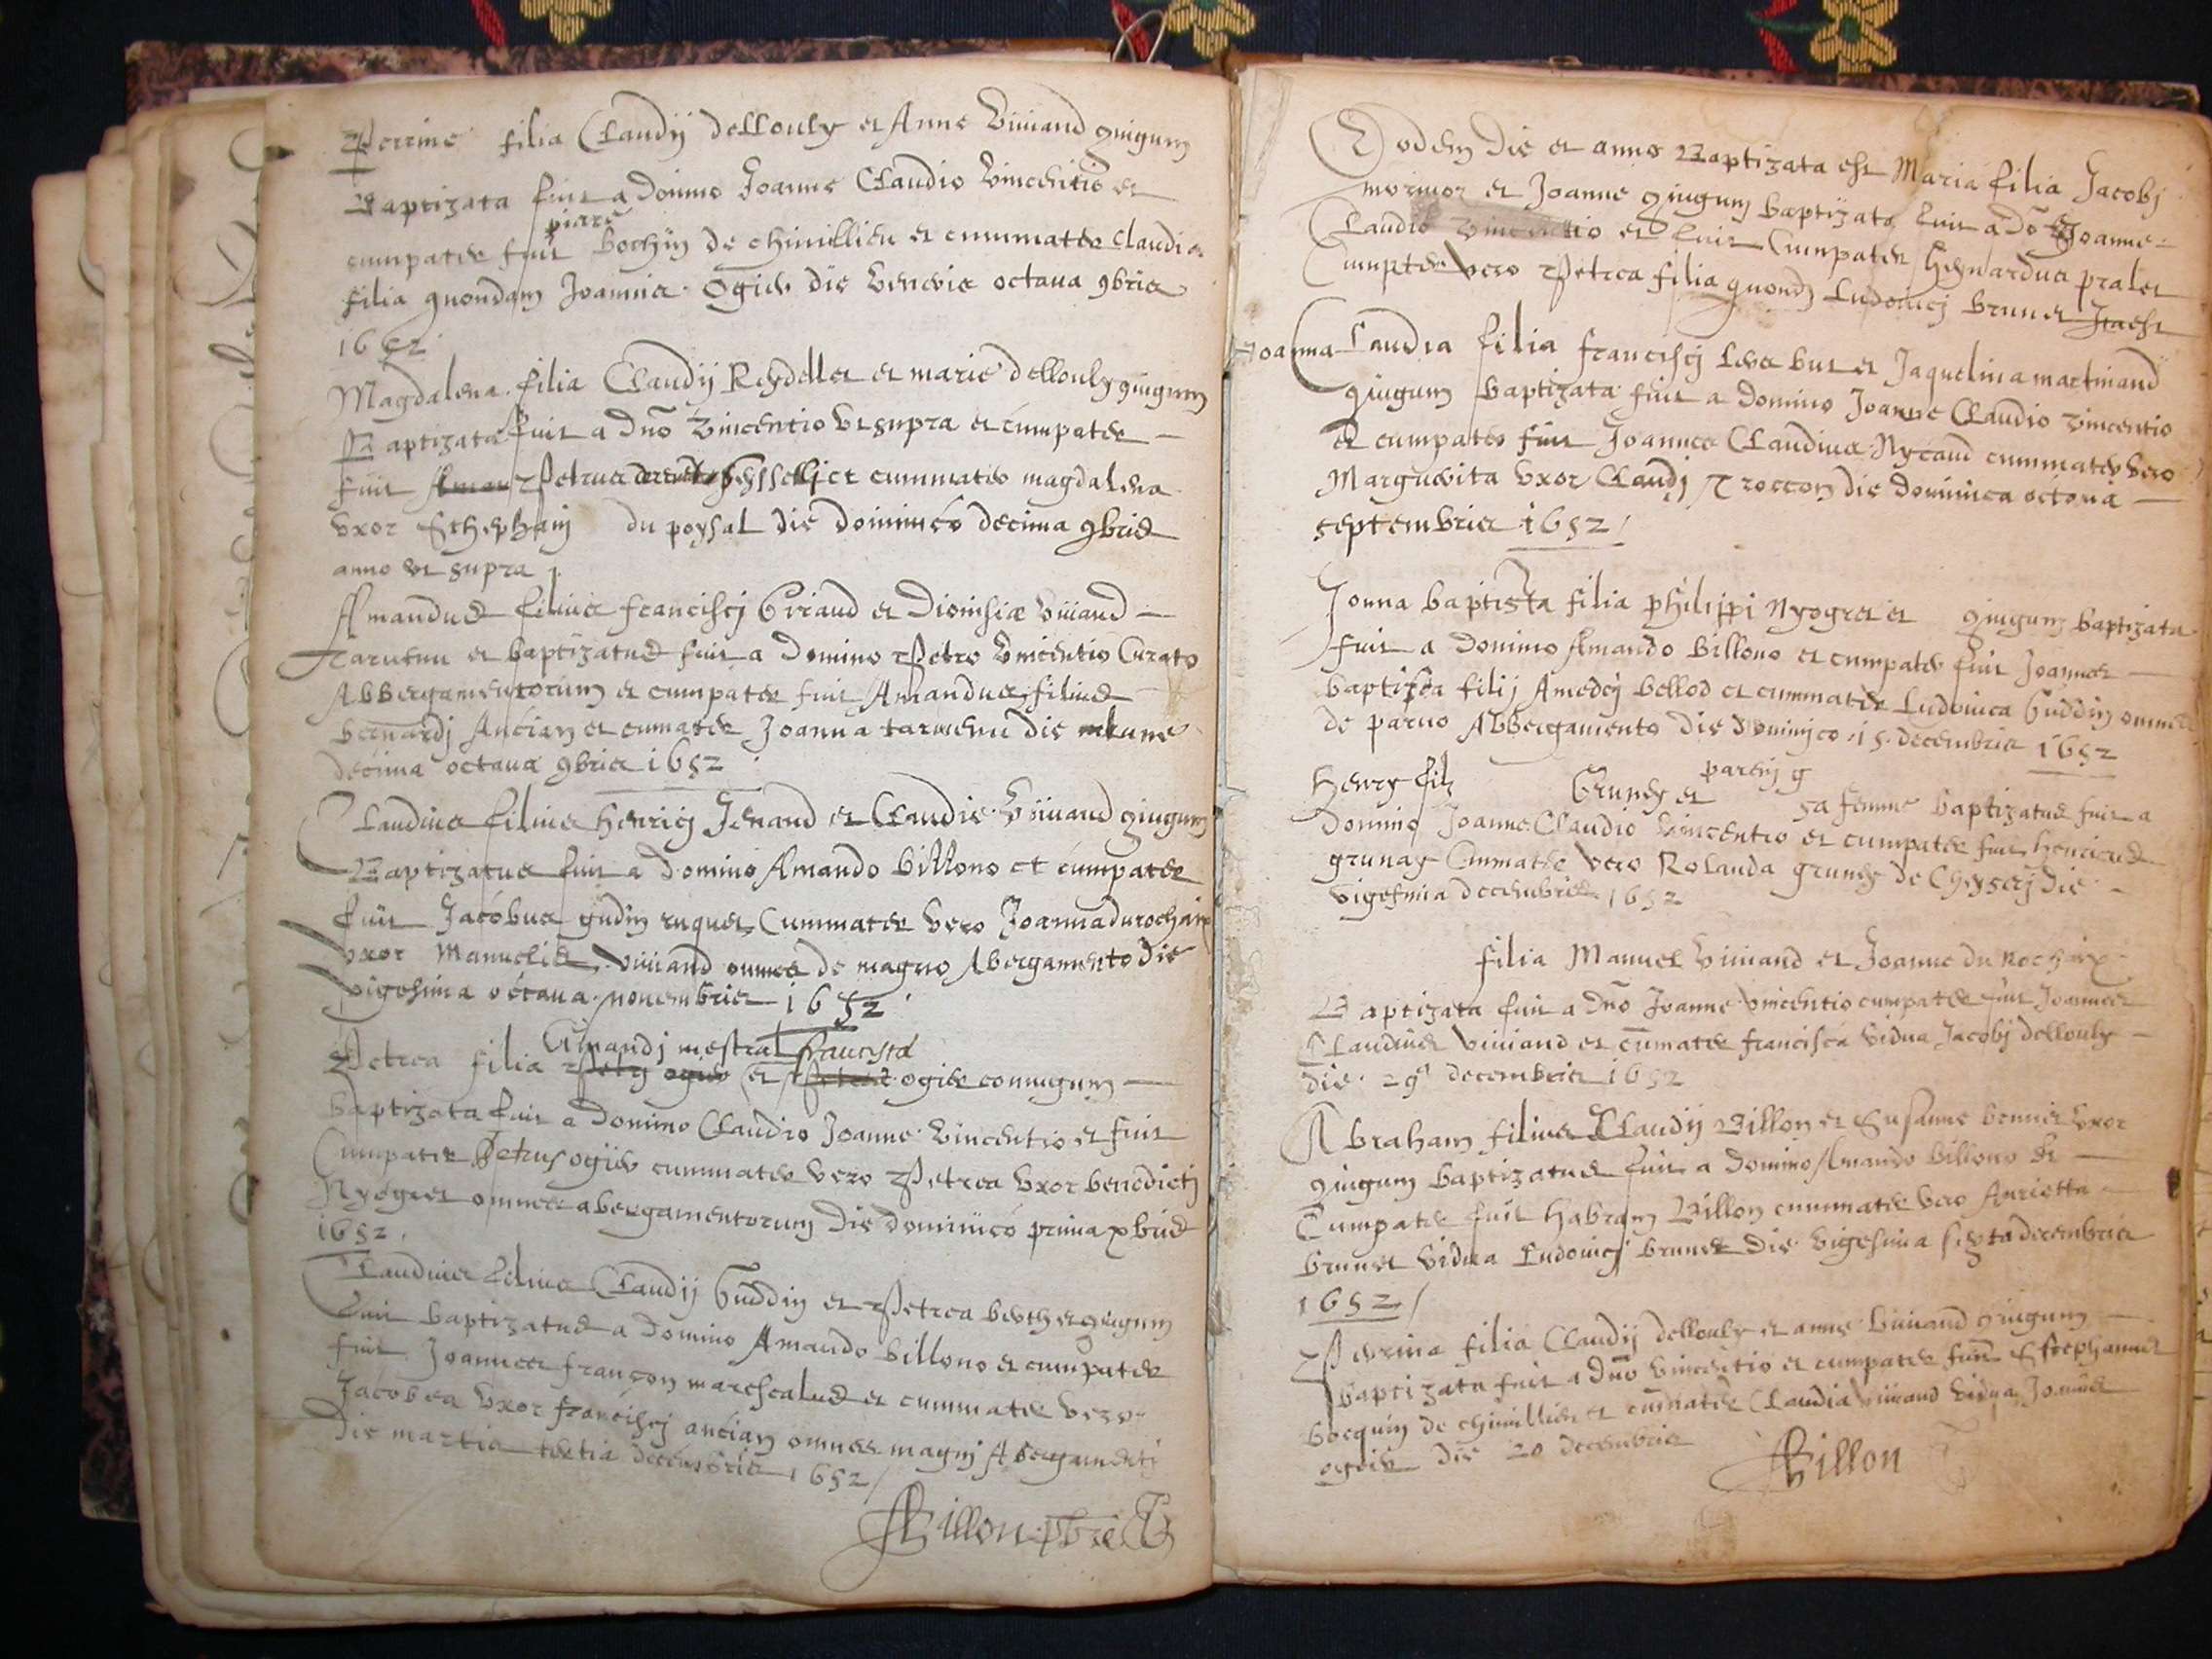 Perrine filia Claudij dellouly et Anne Viuand giugum
Baptizata fuit a domino Joanne Claudio Vincentio et
piere
cumpater fuit bochin de chiuillieu et cummater Claudia
filia quondam Joannis Ogier die Veneris octaua 9bris
1652
Magdalena filia Claudij Reydellet et marie dellouly giugum
Baptizata fuit a dno Vincentio Vt supra et cumpater
fuit Petrus et cummater magdalena
Vxor Sthephanj du poysal die dominico decima 9bris
anno vt supra
Amandus filius francisci Griaud et Dionisiæ Viuand
et baptizatus fuit a Domino Petro Vincentio Curato
Abbergamentorum et cumpater fuit Amandus filius
bernardj Ancian et cumater Joanna die lune
decima octaua 9bris 1652
Claudius filius Henricj Jenand et Claudie Viuiand giugum
Baptizatus fuit a domino Amando billono et cumpater
fuit Jacobus gudin Cummater Vero Joanna durochaix
Vxor Manuelis Viuiand omnes de magno Abergamento die
Vigesima octaua nouembris 1652
Amandj mestral francisca
Petrea filia et ogier coniugum
baptizata fuit a Domino Claudio Joanne Vincentio et fuit
Cumpater Petrus ogier cummater vero Petrea Vxor benedictj
Nyogret omnes abergamentorum die dominico prima xbris
1652
Claudius filius Claudij Guddin et Petrea giugum
fuit baptizatus a Domino Amando billono et cumpater
fuit Joannes françon marescalus et cummater Vero
Jacobea Vxor francisci ancian omnes magnj Abergamentj
Die martis tertia decembris 1652
Billon pbre
Eodem die et anno Baptizata est Maria filia Jacobj
et Joanne giugum baptizata fuit a do Joanne
Claudio Vincentio et fuit Cumpater Heynardus pralet
Cumpter Vero Petrea filia quond Ludouicj brunet
Joanna Claudia filia francisci et Jaquelina martinand
giugum baptizata fuit a Domino Joanne Claudio Vincentio
et cumpater fuit Joannes Claudius Nycaud cummater Vero
Marguerita Vxor Claudj Troccon die dominica octoua
septembris 1652
Jonna baptista filia philippi Nyogret et giugum baptizata
fuit a Domino Amando Billono et cumpater fuit Joannes
baptista filij Amedej bellod et cummater Ludouica Guddin omnes
de paruo Abbergamento die Dominico 15 decembris 1652
Henry filz Gruney et sa femme baptizatus fuit a
domino Joanne Claudio Vincentio et cumpater fuit henricus
grunay Cummater Vero Rolanda gruney de Cheysery die
Vigesima decembris 1652
filia Manuel Viuiand et Joanne du Rochaix
Baptizata fuit a dno Joanne Vincentio cumpater fuit Joannes
Claudius Viuiand et cumater francisca Vidua Jacobj dellouly
die 29 decembris 1652
Abraham filius Claudij Billon et Susanne Vxor
giugum baptizatus fuit a domino Amando billono et
Cumpater fuit Habram Billon cummater Vero Anrietta
brunet Vidua Ludouicj brunet die Vigesima sexta decembris
1652
Perrina filia Claudij dellouly et anne Viuiand giugum
baptizata fuit a dno Vincentio et cumpater fuit Stephanus
bocquin de chiuillieu et cumater Claudia Viuiand Vidua Joannes
ogeir die 20 decembris
Billon